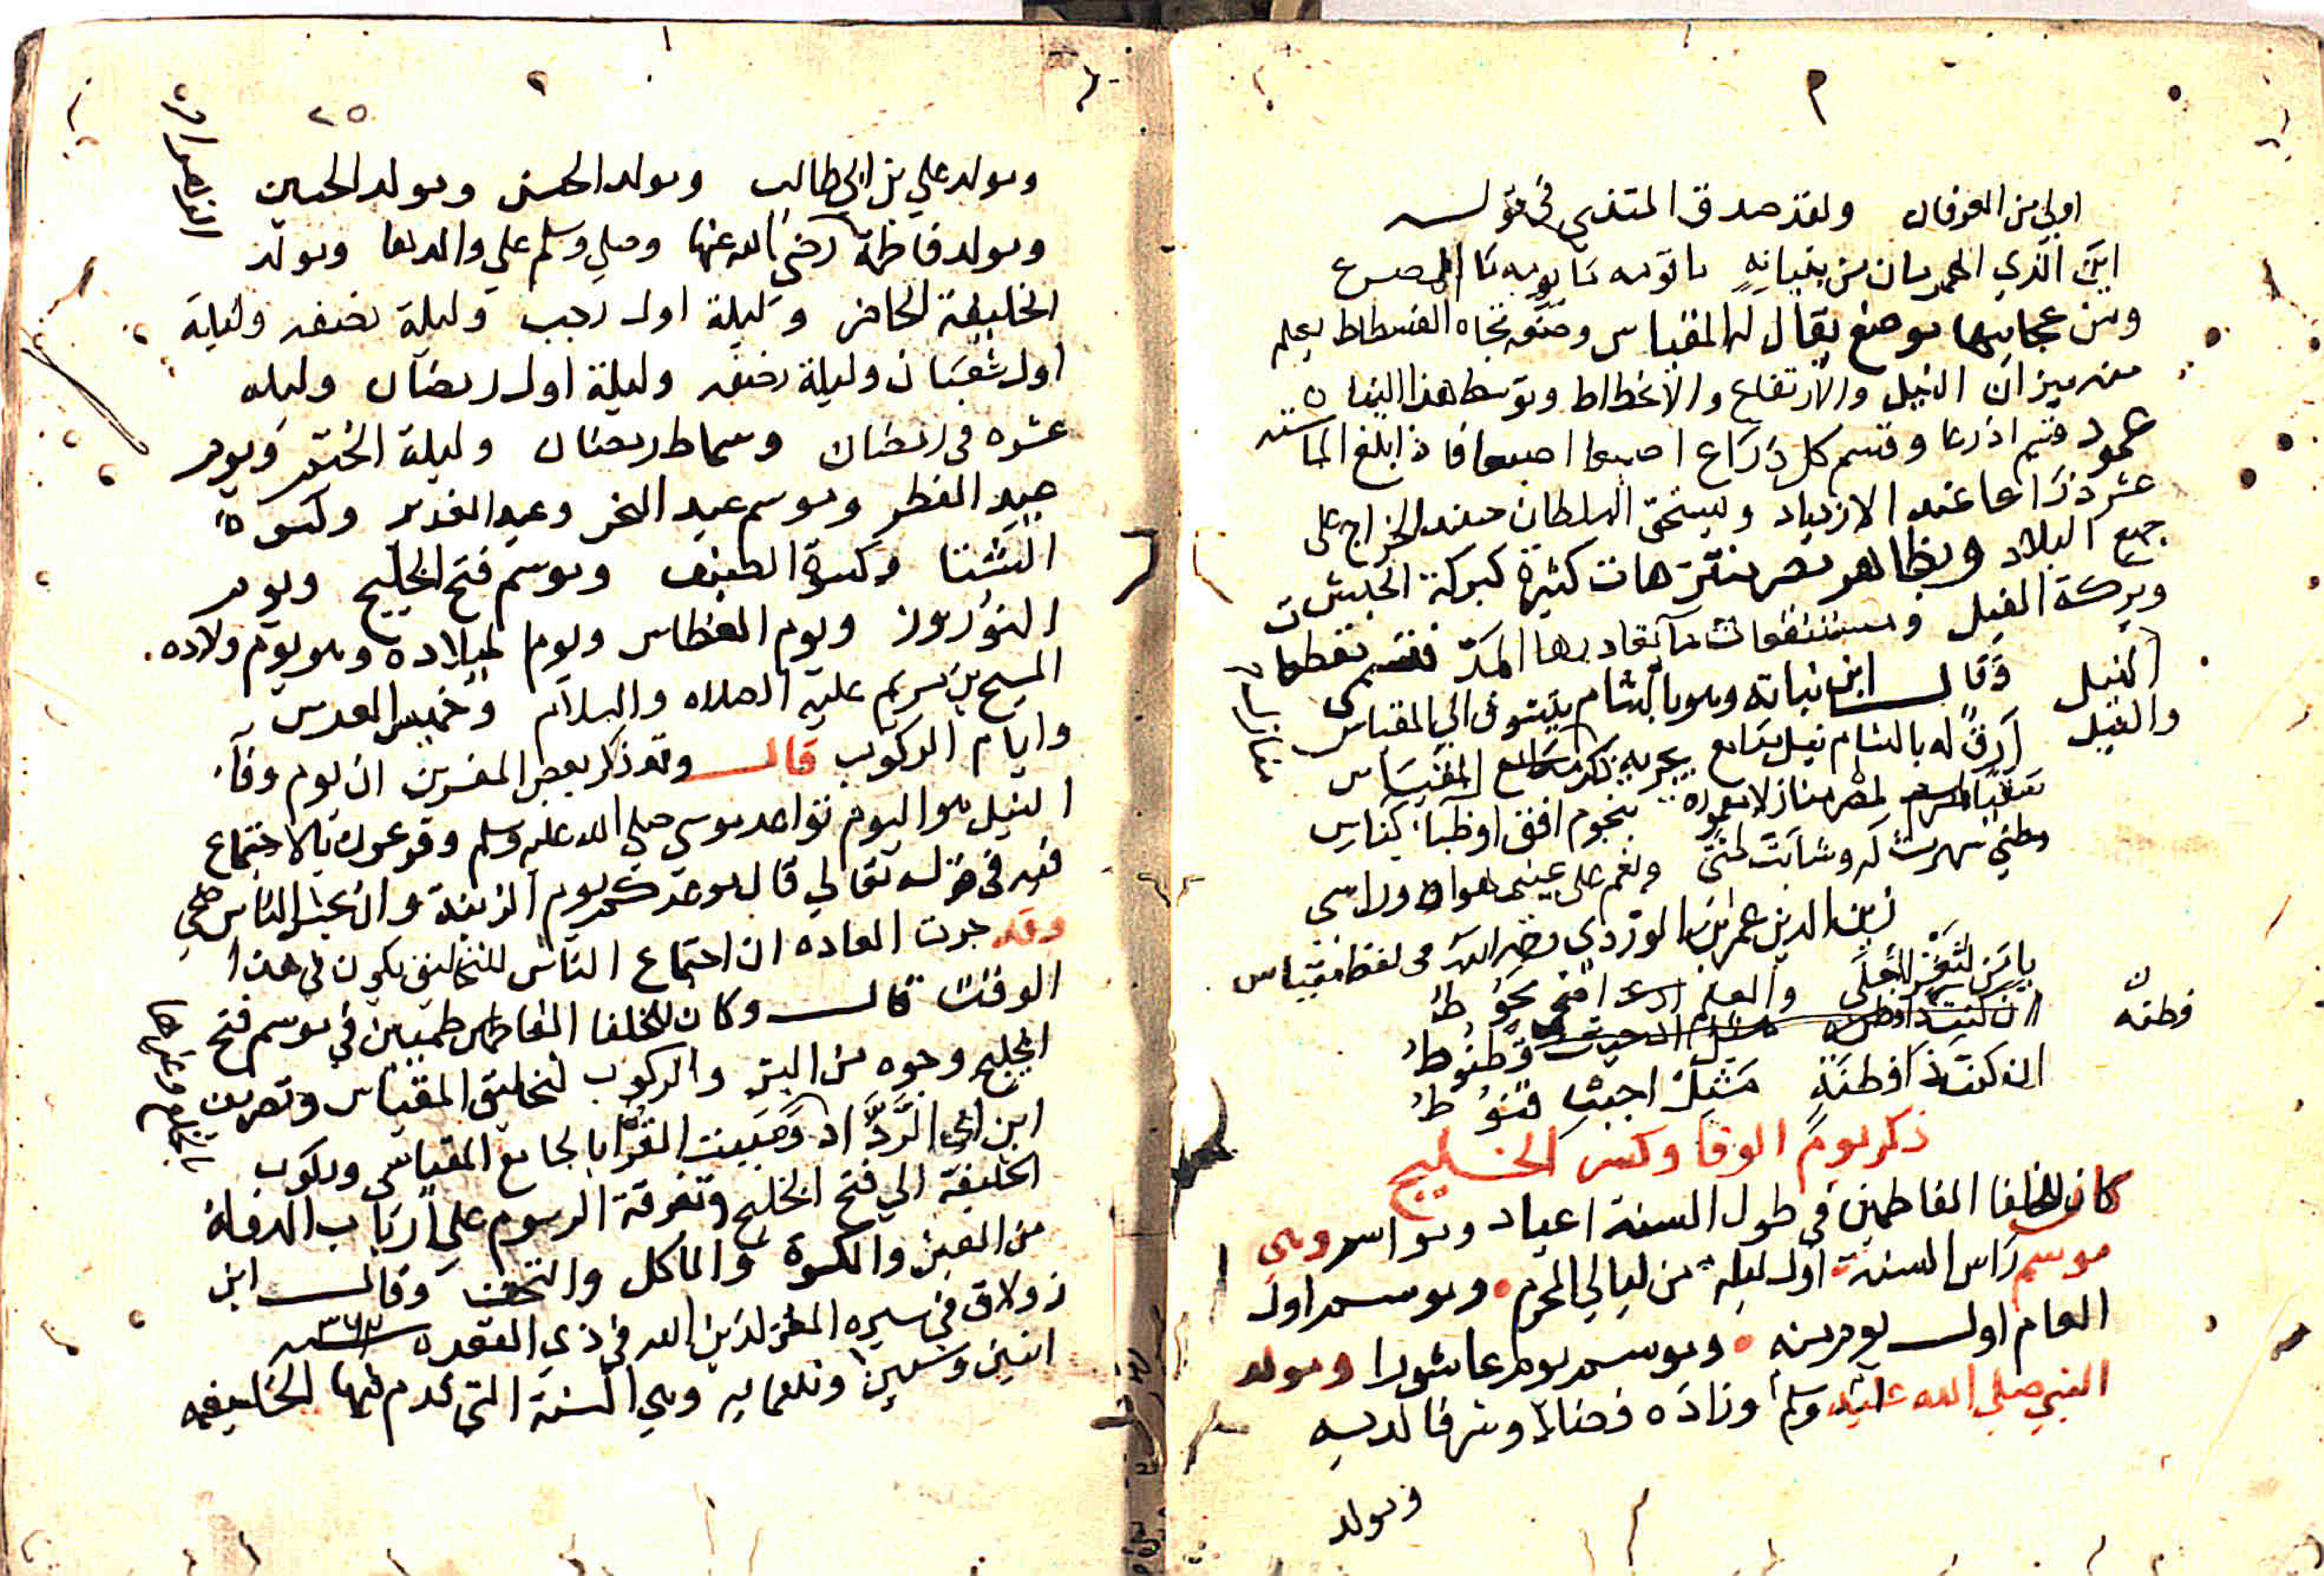 اولي من العرفان ولقد صدق المتنبي في قوله
اين الذي الهرمان من بنيانه ما قومه ما يومه ما المصرع
ومن عجايبها موضع يقال له المقياس وضع تجاه الفسطاط يعلم
منه ميزان النيل والارتفاع والانحطاط وتوسط هذا البنا
عمود قسم اذرعا وقسم كل ذراع اصبعا اصبعا فاذا بلغ الما ستة
عشر ذراعا عند الازدياد ويستحق السلطان عند الخراج على
جميع البلاد وبظاهر مصر منتزهات كثيرة كبركة الحبش
وبركة الفيل ومستنقعات ما يغادرها المد
النيل وقال ابن نباتة وهو بالشام يتشوق الي المقياس
والفيل ارق له بالشام نيل مدامع يجريه ذكر منازل المقياس
سقيا لمصر منازلا معمورة بنجوم افق او ظبا كناس
وطني سهرت له وشابت لمتي ونعم على عيني هواه وراسي
زين الدين عمر ابن الوردي رحمه الله في لفظ مقياس
فطنه
ان كنت ذا فطنة مثل اجيب قنوط
ذكر يوم الوفا وكسر الخليج
كان للخلفا الفاطمين في طول السنة اعياد ومواسم وهي
موسم راس السنة اول ليلة من ليالي المحرم وموسم اول
العام اول يوم منه وموسم يوم عاشورا ومولد
النبي صلى الله عليه وسلم وزاده فضلا وشرفا لديه
ومولد
٢٥
ومولد علي بن ابي طالب ومولد الحسن ومولد الحسين
ومولد فاطمة رضي الله عنها وصلي وسلم علي والدها ومولد
الخليفة الحاضر وليلة اول رجب وليلة نصفه وليلة
اول شعبان وليلة نصفه وليلة اول رمضان وليله
عشره في رمضان وسماط رمضان وليلة الختم ويوم
عيد الفطر وموسم عيد النحر وعيد الغدير وكسوة
الشتا وكسوة الصيف وموسم فتح الخليج ويوم
النوروز ويوم الغطاس ويوم الميلاده وهو يوم ولاده
المسيح بن مريم عليه الصلاه والسلام وخميس العدس
وايام الركوب قال وقد ذكر بعض المفسرين ان يوم وفا
النيل هو اليوم تواعد موسي صلي الله عليه وسلم وفرعون بالاجتماع
فيه في قوله تعالي قال موعدكم يوم الزينة وان يحشر الناس ضحي
وقد جرت العاده ان اجتماع الناس للتخليق يكون في هذا
الوقت قال وكان للخلفا الفاطميين في موسم فتح
الخليج وجوه من البر والركوب لتخليق المقياس
ابن ابي الرداد ومبيت القرا بالجامع المقياس وركوب
الخليفة الي فتح الخليج وتفرقة الرسوم على ارباب الدولة
من العين والكسوة والماكل والتحف وقال ابن
زولاق في سيره المعز لدين الله في ذي القعده ٣٦٢ سنه
اثنين وستين وثلثمايه وهي السنة التي قدم فيها الخليفه